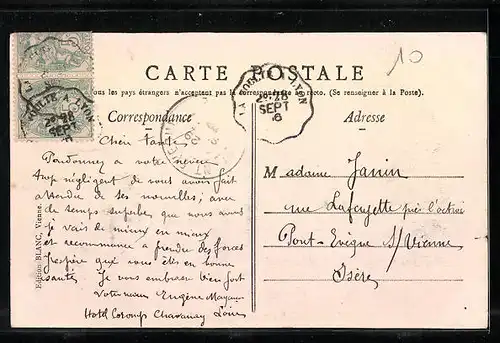 10
CARTE POSTALE
Tous les pays étrangers n'acceptent pas la correspondance au recto. (Se renseigner à la Poste).
Correspondance
Adresse
LYON
2° 28
SEPT
6
VOULTE A LYON
2° 28
SEPT
Chère Tante
Pardonnez a votre neveu
trop négligent de vous avoir fait
attendre de ses nouvelles, avec
ce temps superbe que nous avons
je vais de mieux en mieux
et recommence a prendre des forces
J'espère que vous êtes en bonne
santé. Je vous embrasse bien fort
Votre neveu Eugène
Hotel Chavanay Loire
Madame Janin
rue Lafayette près l'octroi
Pont-Evêque S/Vienne
Isère
Edition BLANC, Vienne.